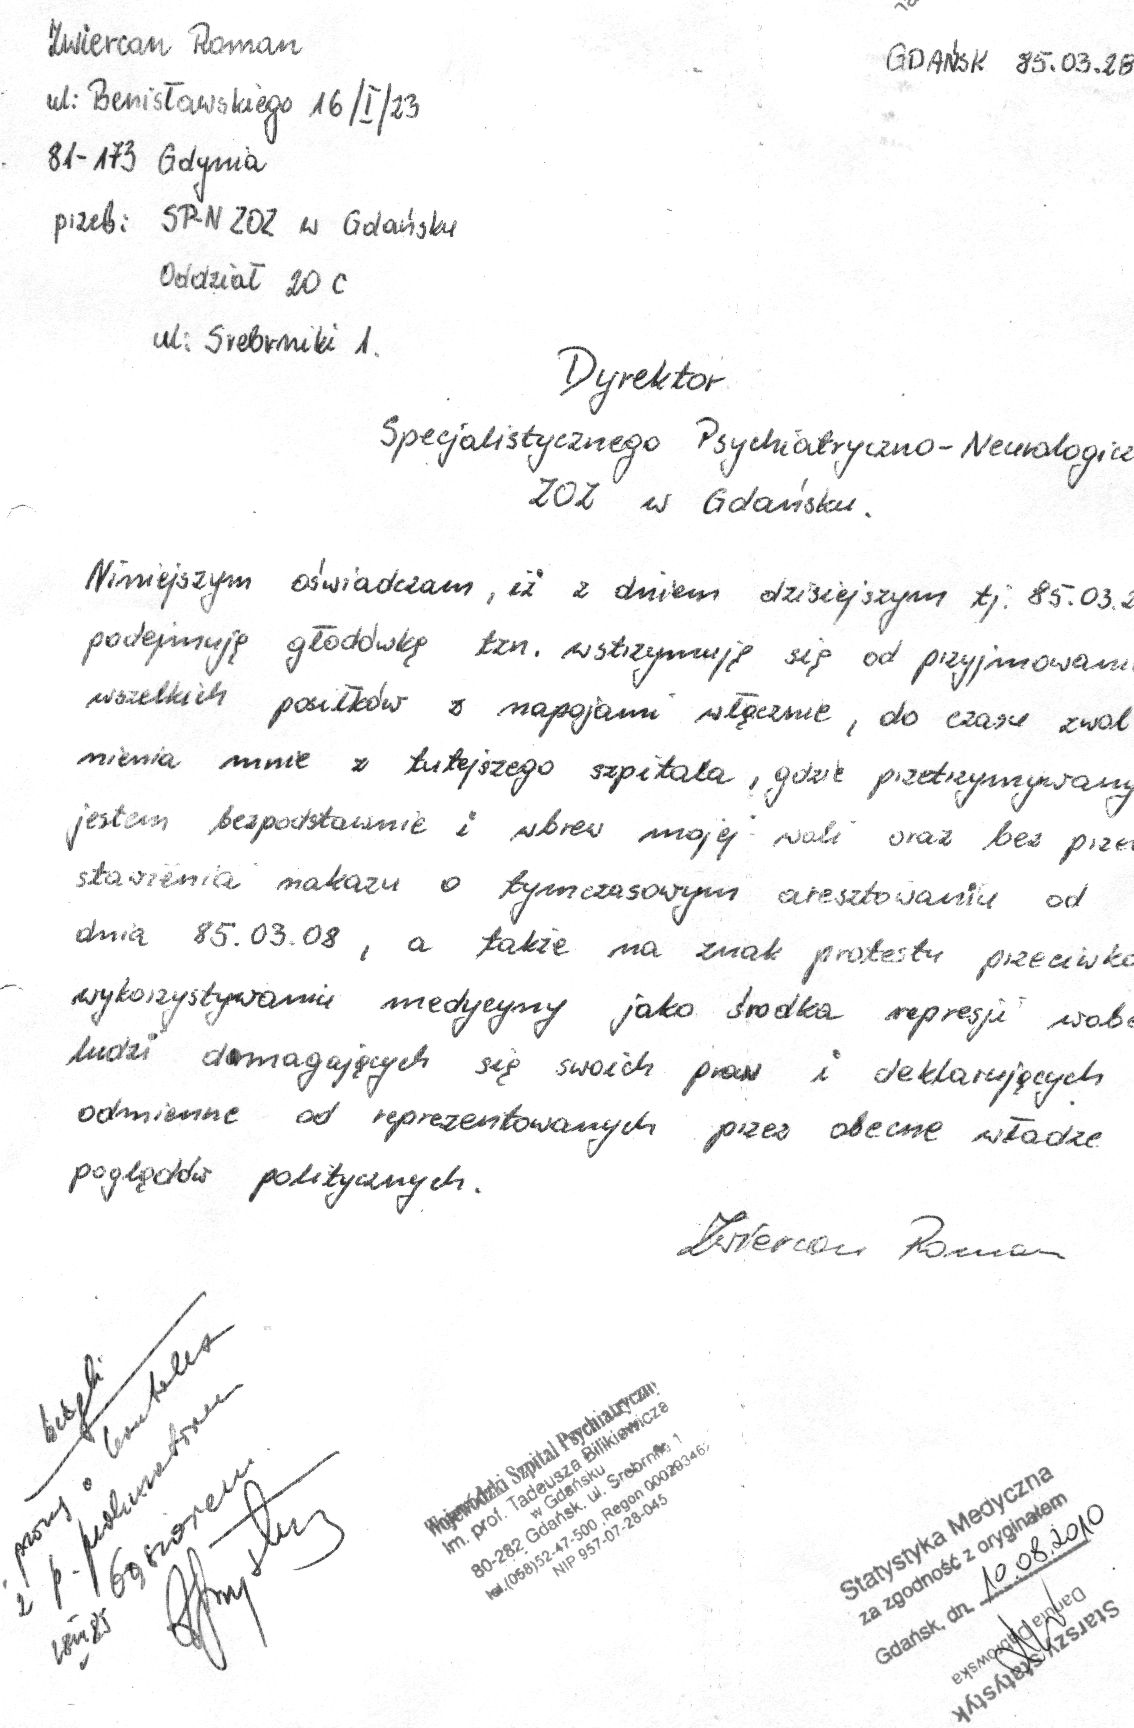 Zwiercan Roman
GDAŃSK 85.03.28
ul: Benisławskiego 16/I/23
81-173 Gdynia
przeb: SP-N ZOZ w Gdańsku
Oddział 20 C
ul: Srebrniki 1.
Dyrektor
Specjalistycznego Psychiatryczno-Neurologicz
ZOZ w Gdańsku.
Niniejszym oświadczam, iż z dniem dzisiejszym tj. 85.03.2
podejmuję głodówkę tzn. wstrzymuję się od przyjmowani
wszelkich posiłków z napojami włącznie, do czasu zwol
nienia mnie z tutejszego szpitala, gdzie przetrzymywany
jestem bezpodstawnie i wbrew mojej woli oraz bez prze
stawienia nakazu o tymczasowym aresztowaniu od
dnia 85.03.08, a także na znak protestu przeciwko
wykorzystywaniu medycyny jako środka represji wobe
ludzi domagających się swoich praw i deklarujących
odmienne od reprezentowanych przez obecne władze
poglądów politycznych.
Zwiercan Roman
proszę o kontakt
z p. prokuratorem
Gąsiorem
28 III 85
Wojewódzki Szpital Psychiatryczny
im. prof. Tadeusza Bilikiewicza
w Gdańsku
80-282 Gdańsk. ul. Srebrniki 1
tel.(058)52-47-500 ,Regon 000293462
NIP 957-07-28-045
Statystyka Medyczna
za zgodność z oryginałem
Gdańsk, dn. 10.08.2010
Starszy statystyk
Danuta Dąbrowska